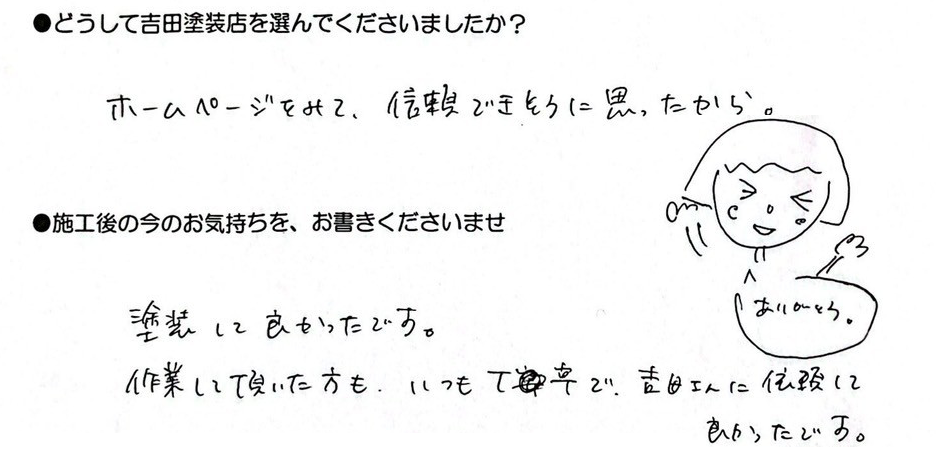 ●どうして吉田塗装店を選んでくださいましたか？
ホームページをみて、信頼できそうに思ったから。
●施工後の今のお気持ちを、お書きくださいませ
ありがとう。
塗装して良かったです。
作業して頂いた方も、いつも丁寧で、吉田さんに依頼して
良かったです。